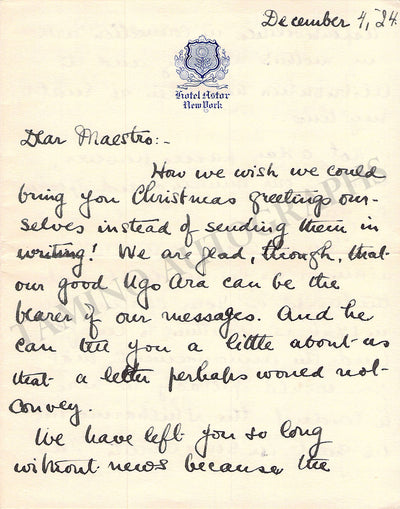 December 4, '24.
Hotel Astor
New York
Dear Maestro:-
How we wish we could
bring you Christmas greetings our-
selves instead of sending them in
writing! We are glad, though, that
our good Ugo Ara can be the
bearer of our messages. And he
can tell you a little about us
that a letter perhaps would not
convey.
We have left you so long
without news because the
TAMINO AUTOGRAPHS